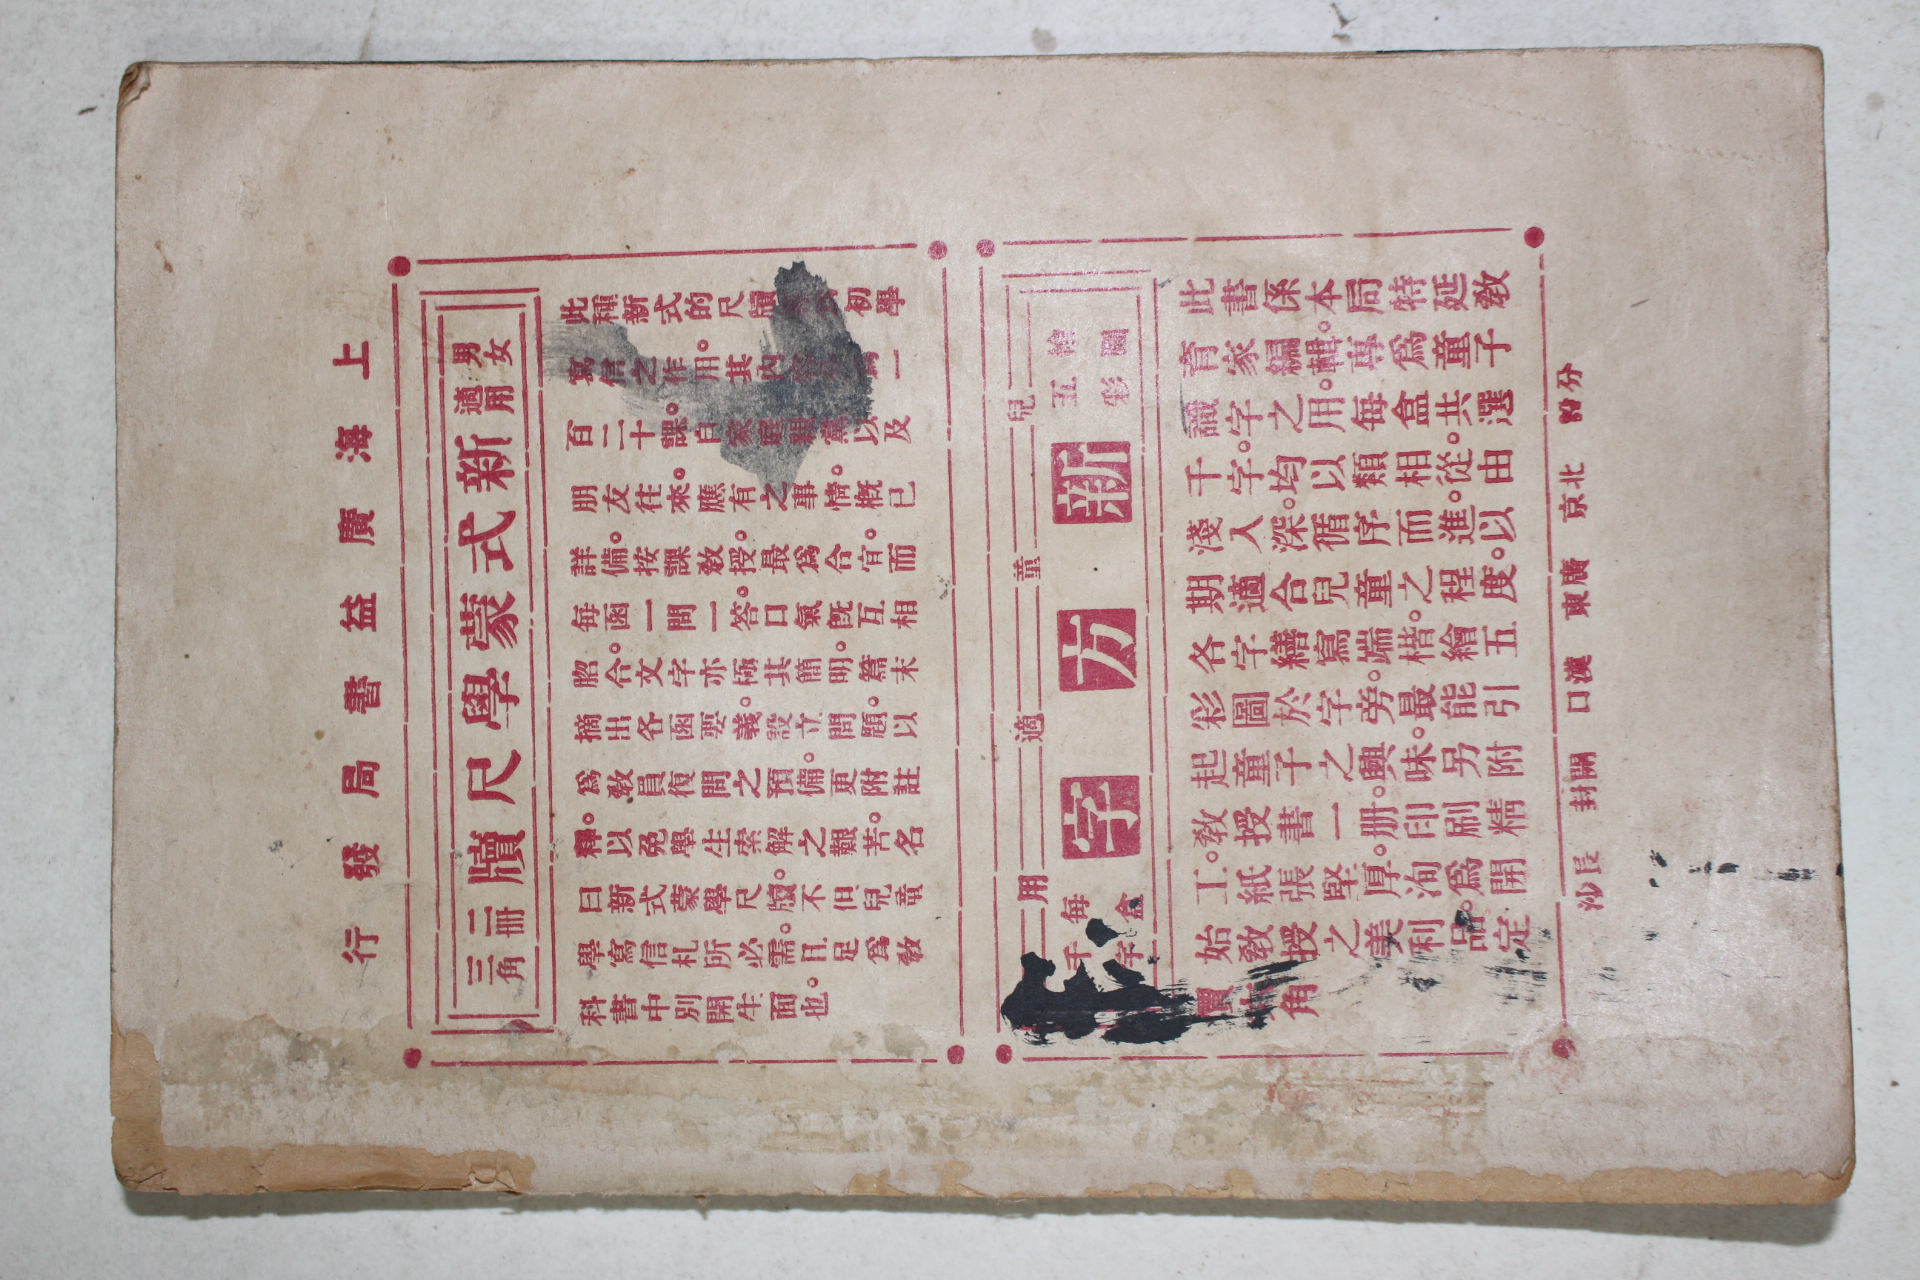 上海廣益書局發行
男女適用
新式蒙學尺牘
二冊三角
此種新式的尺牘初學
寫信之作用。其內一
百二十課。自家庭親黨以及
朋友往來。應有之事情。概已
詳備。按課教授。最爲合宜。而
每函一問一答。口氣既互相
脗合。文字亦極其簡明。篇末
摘出各函要義。設立問題。以
爲教員復問之預備。更附註
釋。以免學生索解之艱苦。名
曰新式蒙學尺牘。不但兒童
學寫信札所必需。且足爲教
科書中別開生面也。
兒童適用
繪圖五彩
新方字
每盒千字
此書係本局特延教
育家編輯。專爲童子
識字之用。每盒共選
千字。均以類相從。由
淺入深。循序而進。以
期適合兒童之程度。
各字繕寫端楷。繪五
彩圖於字旁。最能引
起童子之興味。另附
教授書一册。印刷精
工。紙張堅厚。洵爲開
始教授之美利品。定
價角
分局 北京 廣東 漢口 開封 長沙